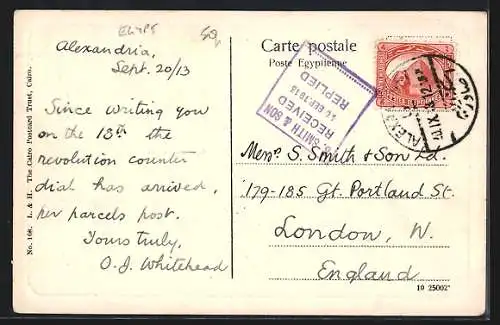 EGYPT
Alexandria,
Sept. 20/13
Since writing you
on the 13th the
revolution counter
dial has arrived,
per parcels post.
Yours truly,
O. J. Whitehead
No. 168. L. & H. The Cairo Postcard Trust, Cairo.
Carte postale
Poste Egyptienne
SMITH & SON
RECEIVED
26 SEP. 1913
REPLIED
Messrs S. Smith & Son Ld.
179-185 Gt. Portland St.
London, W.
England
19 25002*